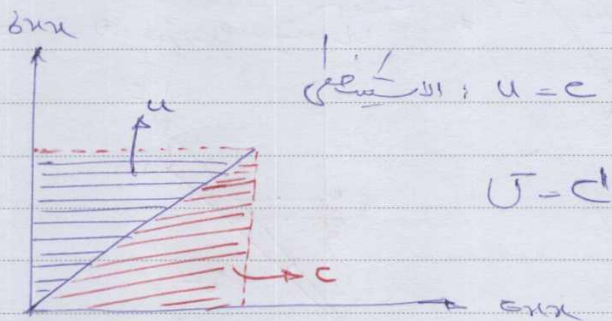 σxx
u
الاستيضى : u = c
U = C
c
εxx